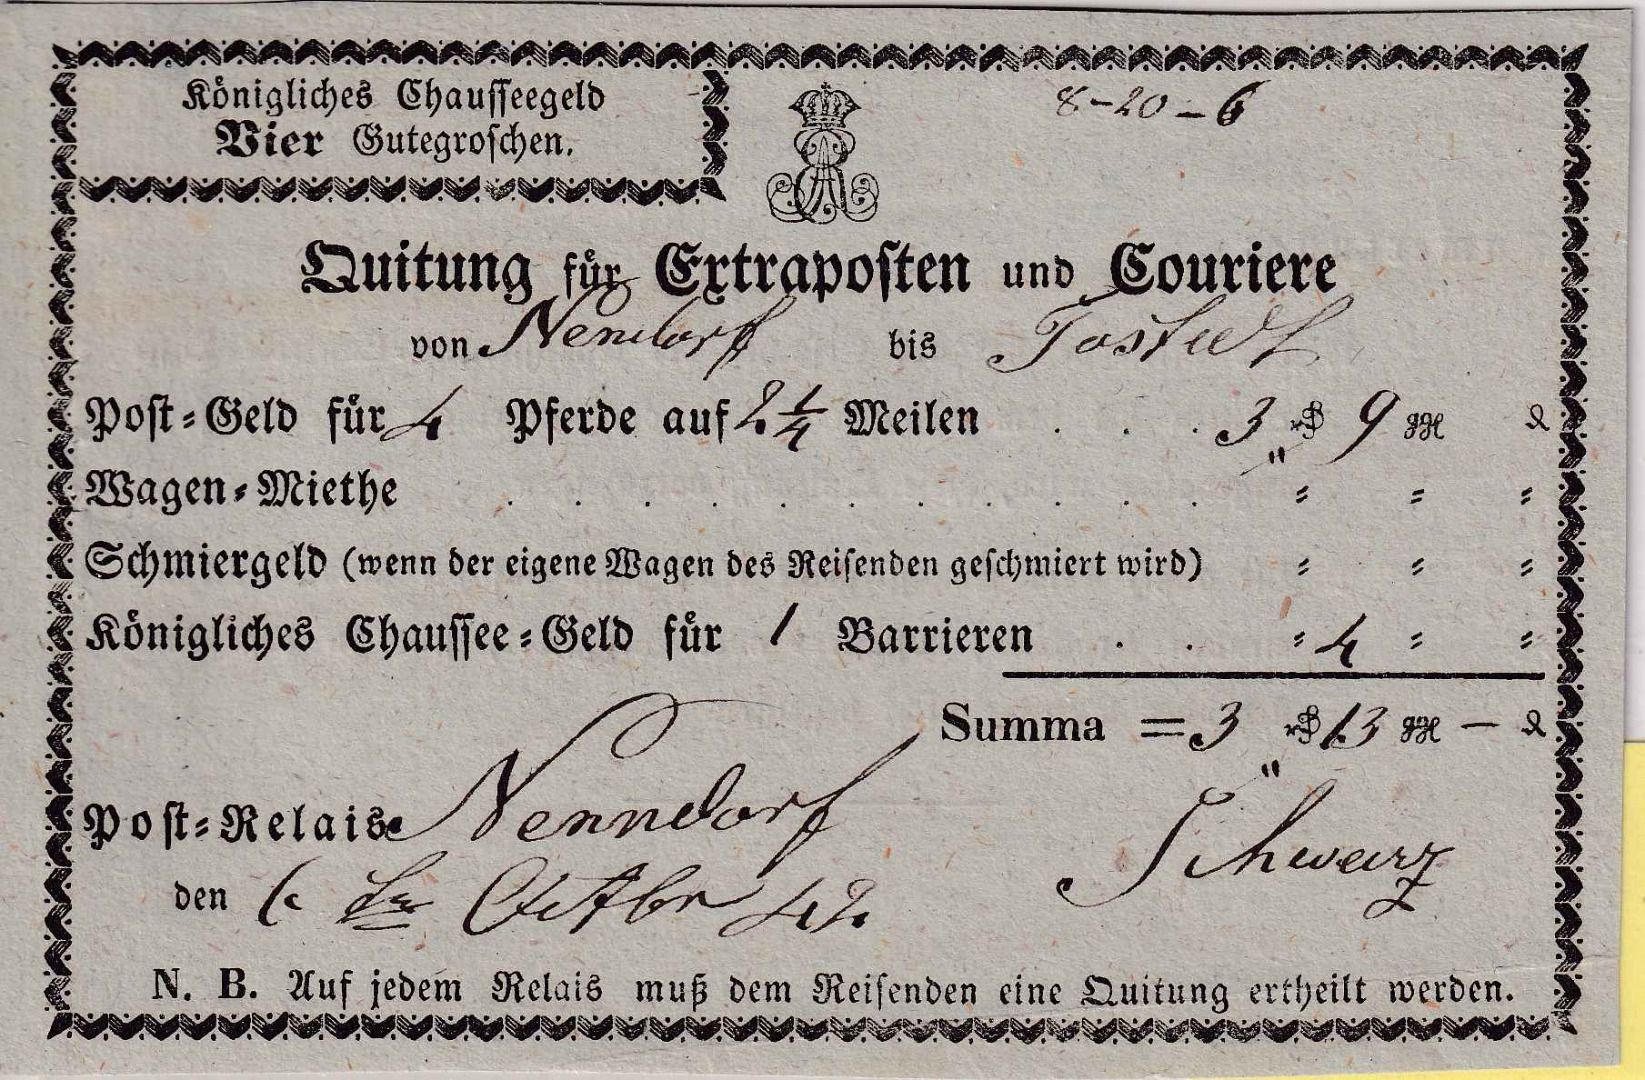 Königliches Chausseegeld
Vier Gutegroschen.
8-20-6
Quitung für Extraposten und Couriere
von Nendorf bis Tostedt
Post-Geld für 4 Pferde auf 2 1/4 Meilen . . . 3 9
Wagen-Miethe
Schmiergeld (wenn der eigene Wagen des Reisenden geschmiert wird)
Königliches Chaussee-Geld für 1 Barrieren . . 4
Summa = 3 13 –
Post-Relais Nenndorf
Schwarz
den 6 Octbr 42.
N. B. Auf jedem Relais muß dem Reisenden eine Quitung ertheilt werden.